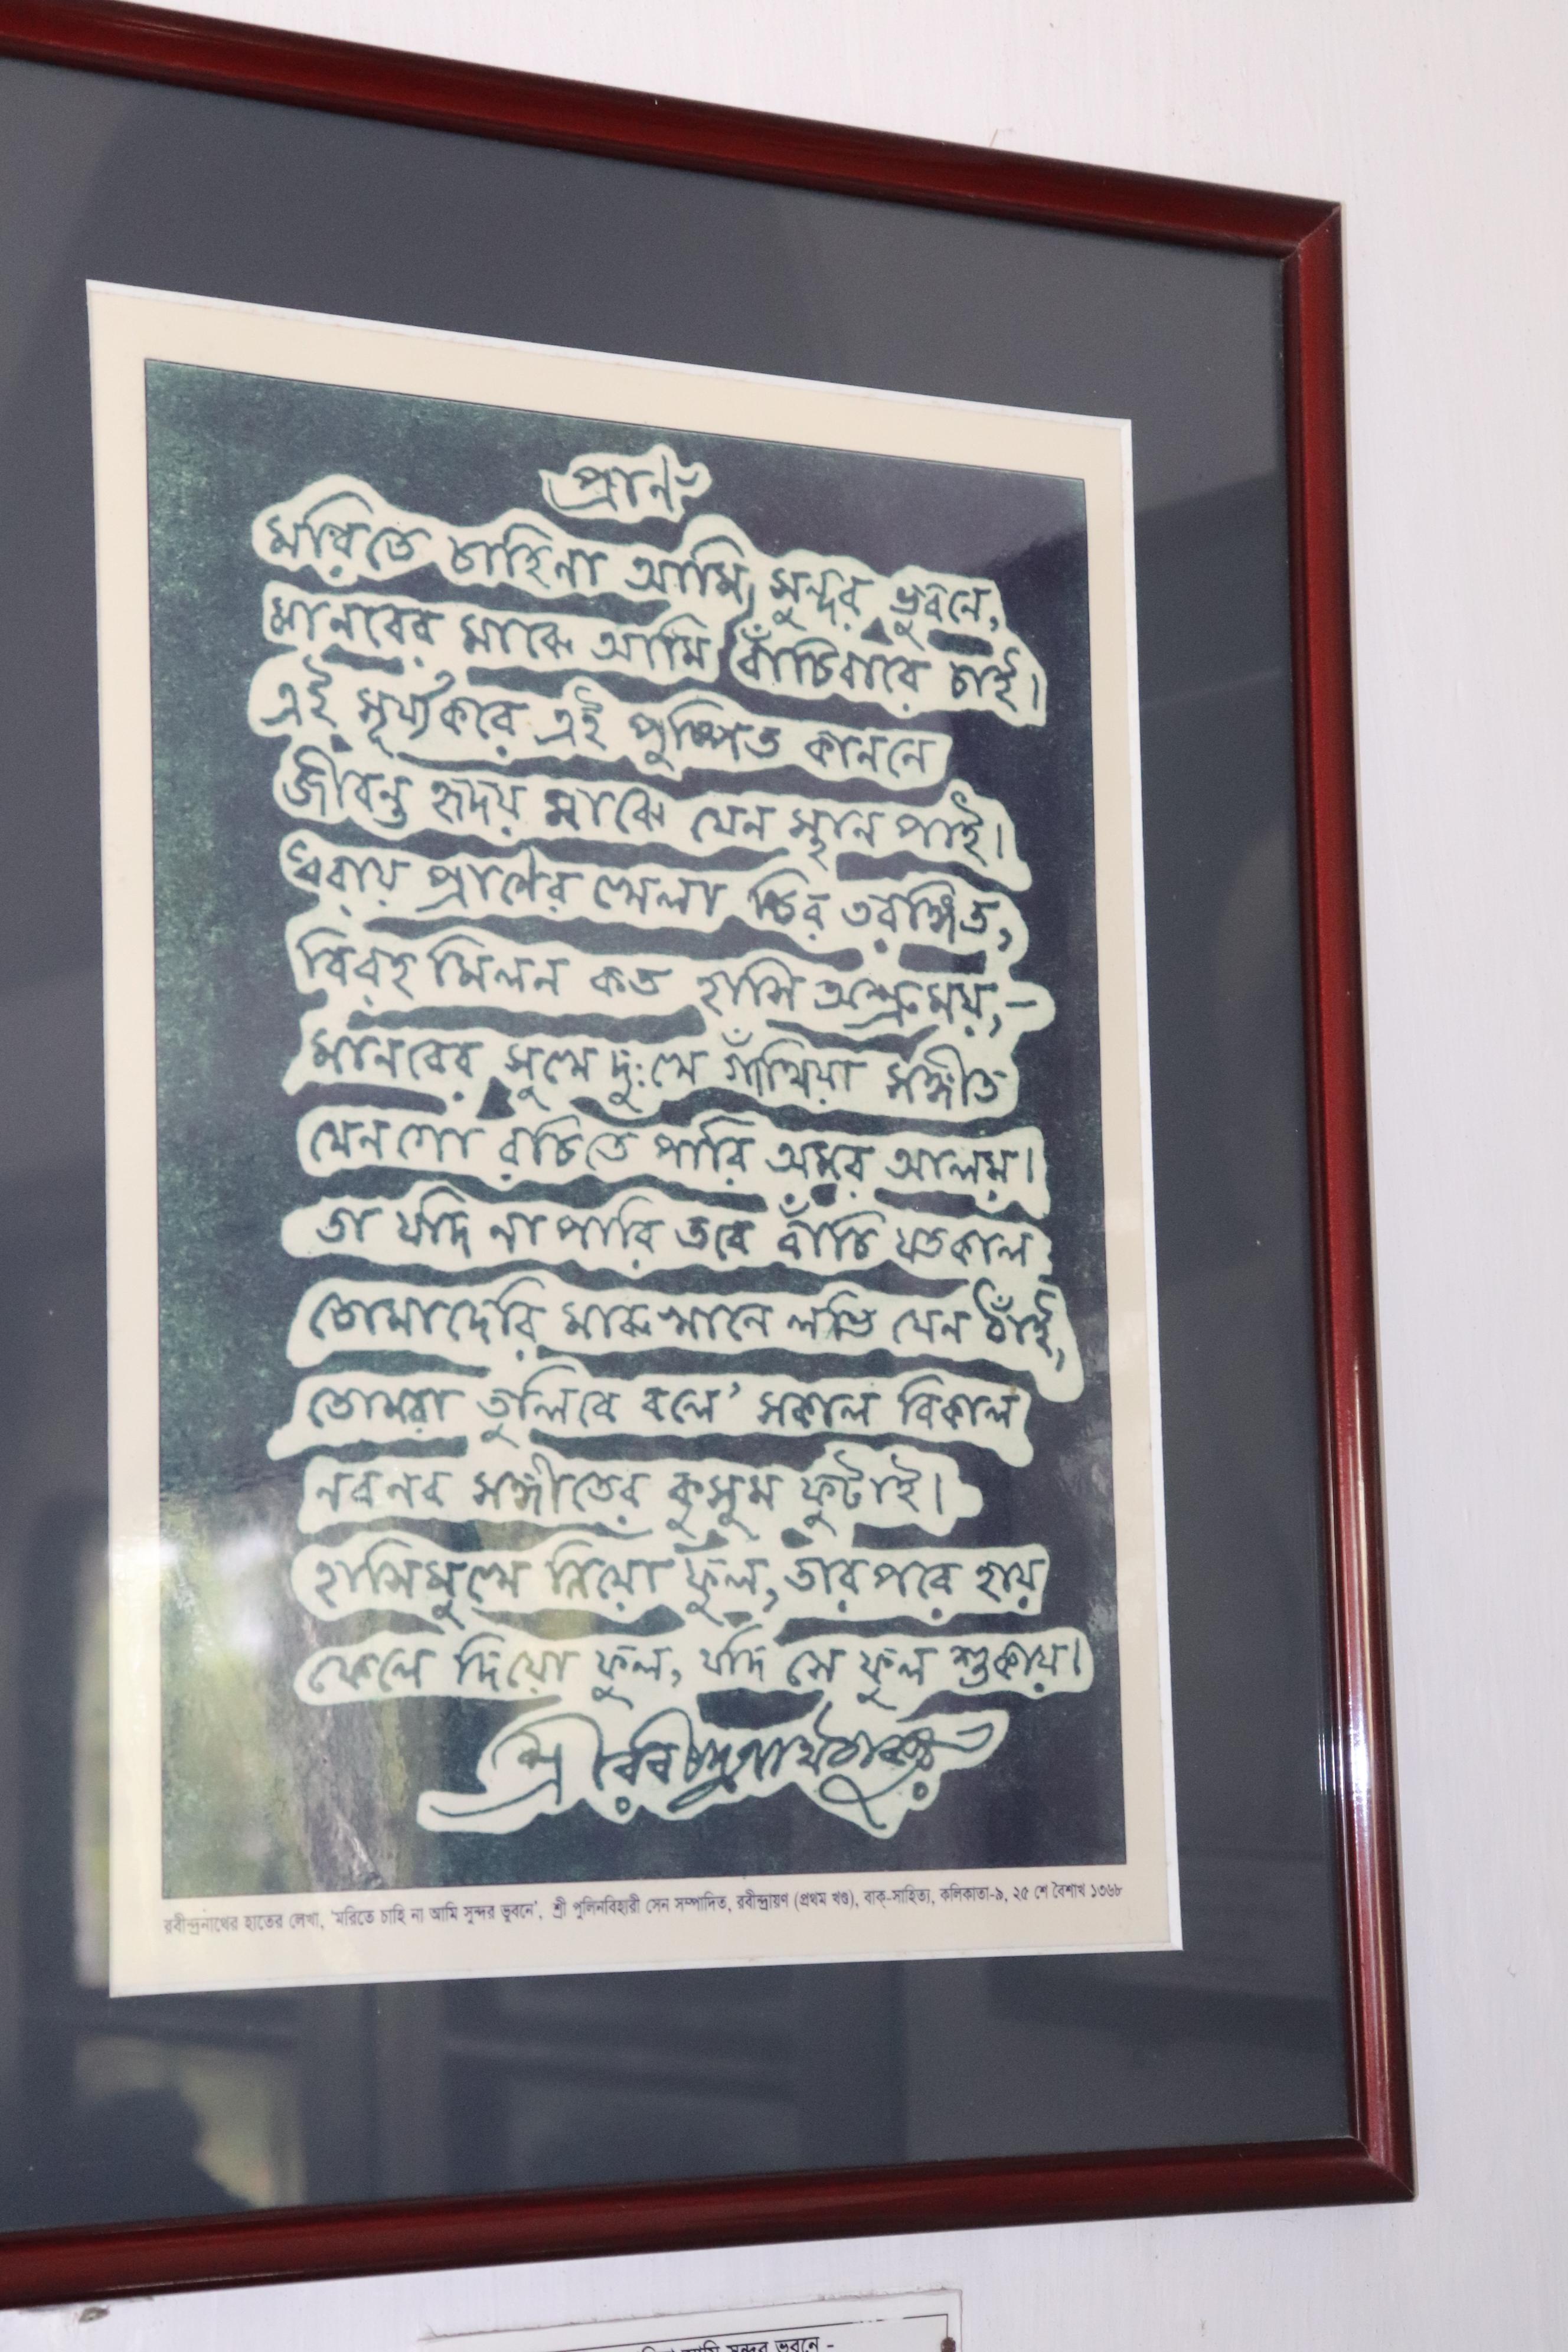 প্রাণ
মরিতে চাহিনা আমি সুন্দর ভুবনে,
মানবের মাঝে আমি বাঁচিবারে চাই।
এই সূর্য্যকরে এই পুষ্পিত কাননে
জীবন্ত হৃদয় মাঝে যেন স্থান পাই।
ধরায় প্রাণের খেলা চির তরঙ্গিত,
বিরহ মিলন কত হাসি অশ্রুময়,—
মানবের সুখে দুঃখে গাঁথিয়া সঙ্গীত
যেন গো রচিতে পারি অমর আলয়।
তা যদি না পারি তবে বাঁচি যতকাল
তোমাদেরি মাঝখানে লভি যেন ঠাঁই,
তোমরা তুলিবে বলে' সকাল বিকাল
নব নব সঙ্গীতের কুসুম ফুটাই।
হাসিমুখে নিয়ো ফুল, তার পরে হায়
ফেলে দিয়ো ফুল, যদি সে ফুল শুকায়।
শ্রীরবীন্দ্রনাথ ঠাকুর
রবীন্দ্রনাথের হাতের লেখা, 'মরিতে চাহি না আমি সুন্দর ভুবনে', শ্রী পুলিনবিহারী সেন সম্পাদিত, রবীন্দ্রায়ণ (প্রথম খণ্ড), বাক্-সাহিত্য, কলিকাতা-৯, ২৫ শে বৈশাখ ১৩৬৮
আমি সুন্দর ভুবনে -